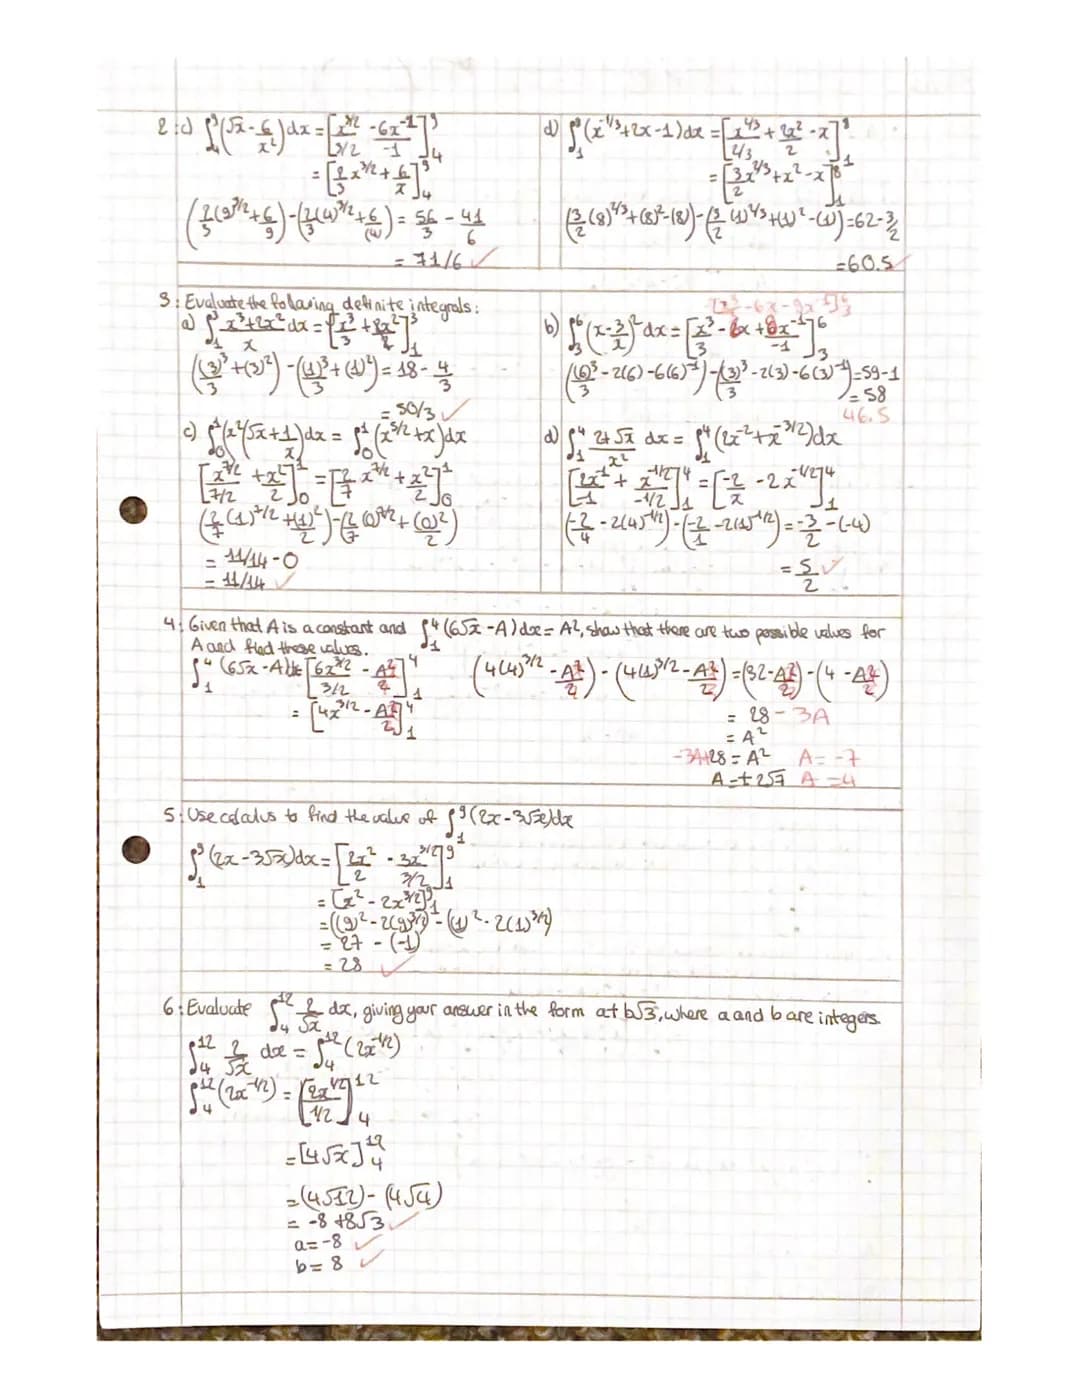 2:c) ∫₄⁹(√x - 6/x²)dx = [x^3/2 / 3/2 - 6x^-1 / -1]₄⁹
= [2/3 x^3/2 + 6/x]₄⁹
(2/3(9)^3/2 + 6/9) - (2/3(4)^3/2 + 6/(4)) = 56/3 - 41/6
= 71/6 ✓
d) ∫₁⁸(x^-1/3 + 2x - 1)dx = [x^2/3 / 2/3 + 2x²/2 - x]₁⁸
= [3/2 x^2/3 + x² - x]₁⁸
(3/2(8)^2/3 + (8)² - (8)) - (3/2(1)^2/3 + (1)² - (1)) = 62 - 3/2
= 60.5 ✓
3: Evaluate the following definite integrals:
a) ∫₁³ x³+2x²/x dx = [x³/3 + 2x²/2]₁³
((3)³/3 + (3)²) - ((1)³/3 + (1)²) = 18 - 4/3
= 50/3 ✓
b) ∫₃⁶(x - 3/x)² dx = [x³/3 - 6x + 9x^-1/-1]₃⁶
((6)³/3 - 2(6) - 6(6)^-1) - ((3)³/3 - 2(3) - 6(3)^-1) = 59 - 1
= 58
46.5
c) ∫₀¹(x²√x + 1/x)dx = ∫₀¹(x^5/2 + x)dx
[x^7/2 / 7/2 + x²/2]₀¹ = [2/7 x^7/2 + x²/2]₀¹
(2/7(1)^7/2 + (1)²/2) - (2/7(0)^7/2 + (0)²/2)
= 11/14 - 0
= 11/14 ✓
d) ∫₁⁴ 2+√x/x² dx = ∫₁⁴(2x^-2 + x^-3/2)dx
[2x^-1/-1 + x^-1/2 / -1/2]₁⁴ = [-2/x - 2x^-1/2]₁⁴
(-2/4 - 2(4)^-1/2) - (-2/1 - 2(1)^-1/2) = -3/2 - (-4)
= 5/2 ✓
4: Given that A is a constant and ∫₁⁴(6√x - A)dx = A², show that there are two possible values for
A and find these values.
∫₁⁴(6√x - A)dx = [6x^3/2 / 3/2 - A²/2]₁⁴
= [4x^3/2 - A²/2]₁⁴
(4(4)^3/2 - A²/2) - (4(1)^3/2 - A²/2) = (32 - A²/2) - (4 - A²/2)
= 28 - 3A
= A²
-3A+28 = A² A = -7
A = ±2√7 A = 4
5: Use calculus to find the value of ∫₁⁹(2x - 3√x)dx
∫₁⁹(2x - 3√x)dx = [2x²/2 - 3x^3/2 / 3/2]₁⁹
= [x² - 2x^3/2]₁⁹
= ((9)² - 2(9)^3/2) - ((1)² - 2(1)^3/2)
= 27 - (-1)
= 28 ✓
6: Evaluate ∫₄¹² 2/√x dx, giving your answer in the form a + b√3, where a and b are integers.
∫₄¹² 2/√x dx = ∫₄¹²(2x^-1/2)
∫₄¹²(2x^-1/2) = [2x^1/2 / 1/2]₄¹²
= [4√x]₄¹²
= (4√12) - (4√4)
= -8 + 8√3 ✓
a = -8 ✓
b = 8 ✓